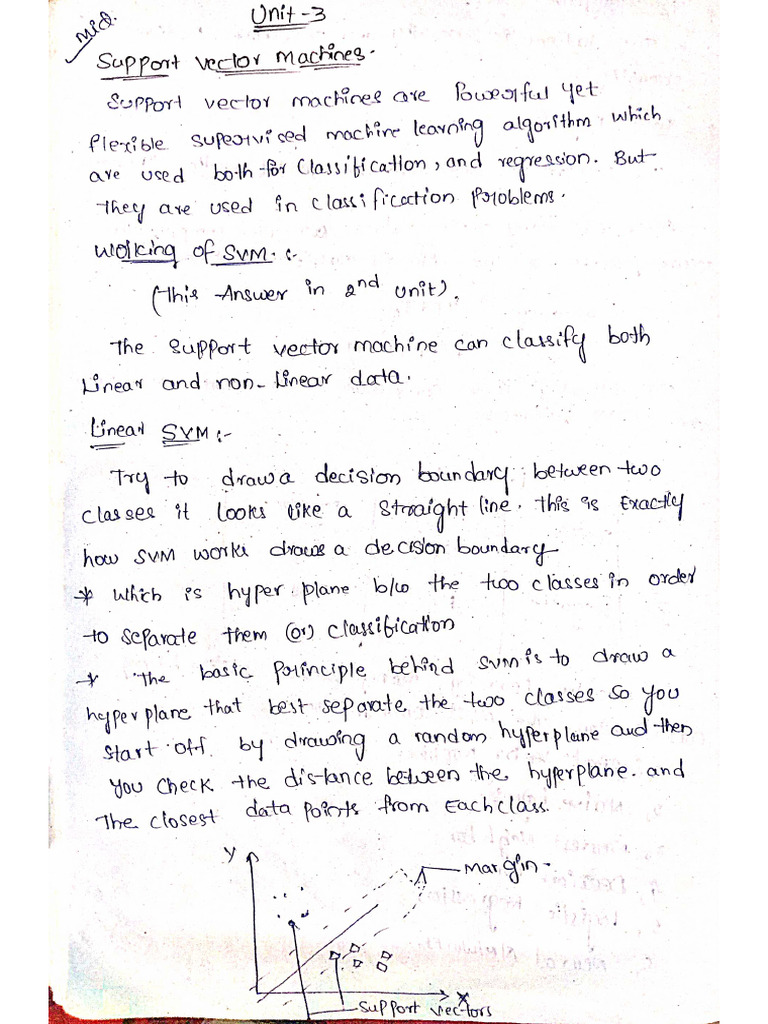 Mid.
Unit-3
Support vector machines.
Support vector machines are Powerful yet
flexible supervised machine learning algorithm which
are used both for Classification, and regression. But
They are used in classification Problems.
Working of SVM. :-
(This Answer in 2nd unit).
The support vector machine can classify both
Linear and non-linear data.
Linear SVM :-
Try to draw a decision boundary between two
classes it looks like a straight line. this is Exactly
how SVM works draws a decision boundary
* which is hyper plane b/w the two classes in order
to separate them (or) classification
* The basic principle behind SVM is to draw a
hyperplane that best separate the two classes so you
start off by drawing a random hyperplane and then
you check the distance between the hyperplane. and
The closest data points from Each class.
Y
margin
X
support vectors